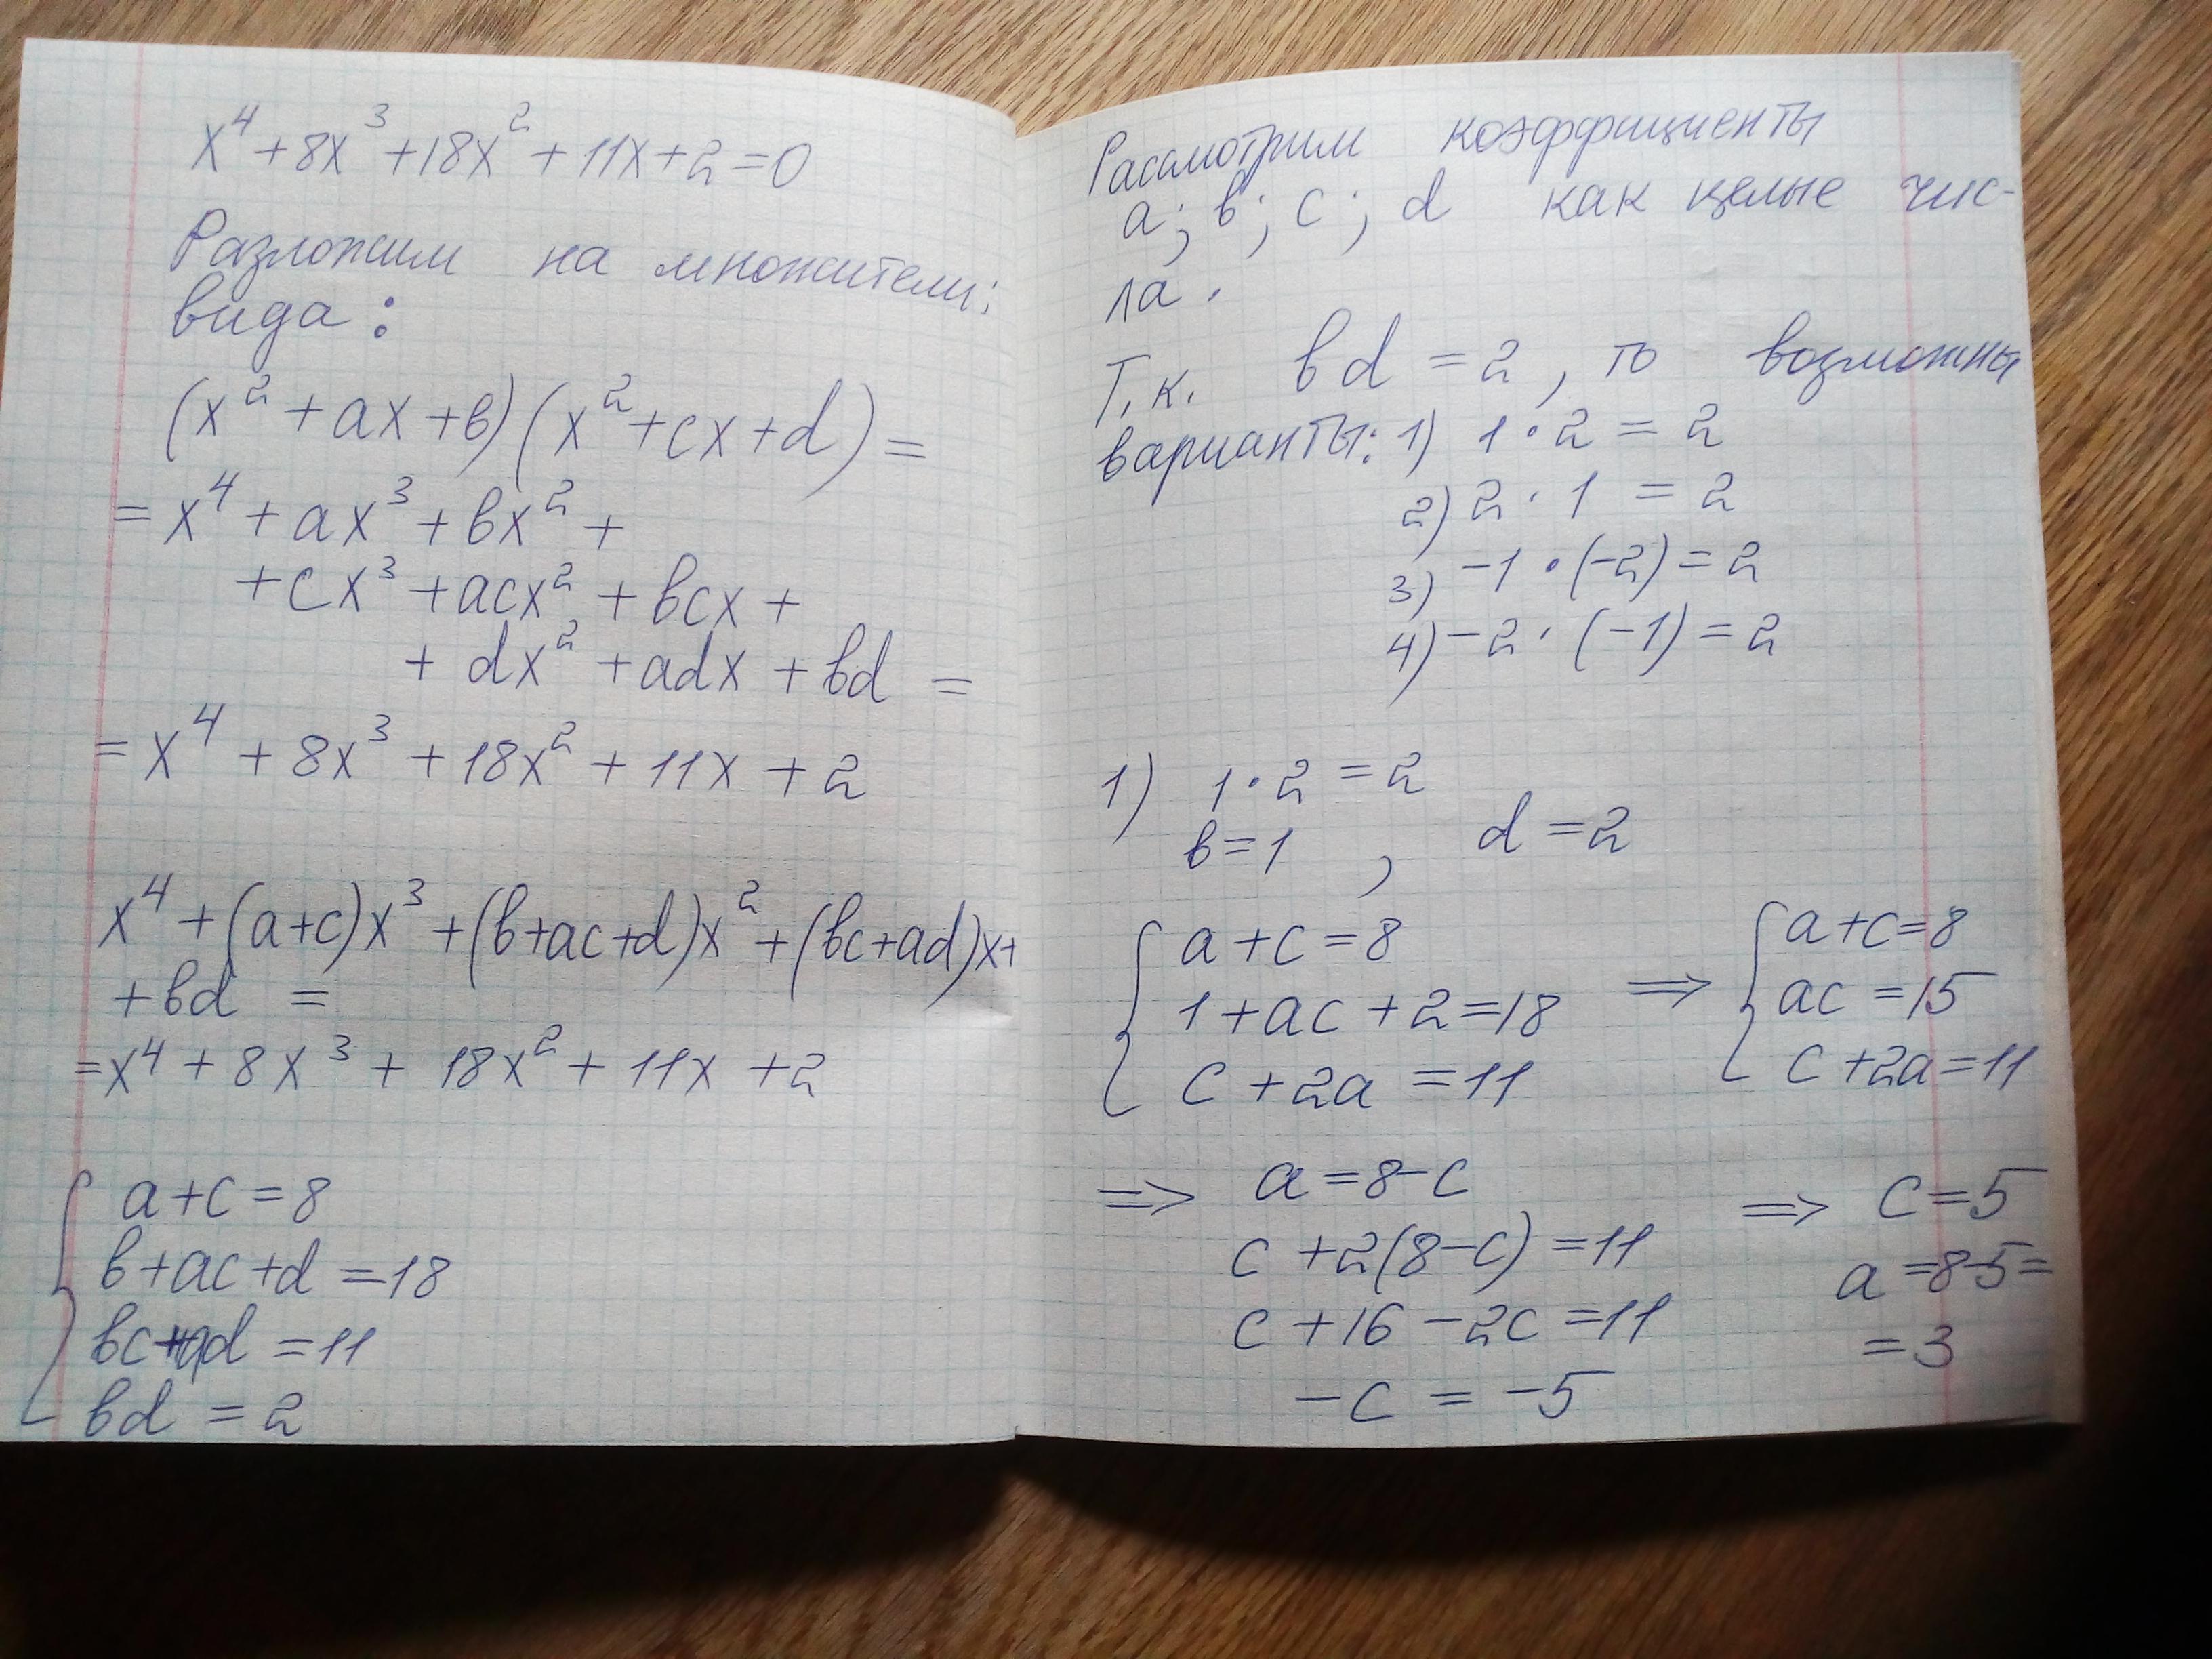 x⁴+8x³+18x²+11x+2=0
Разложим на множители:
вида:
(x²+ax+в)(x²+cx+d)=
=x⁴+ax³+вx²+
+cx³+acx²+вcx+
+dx²+adx+вd=
=x⁴+8x³+18x²+11x+2
x⁴+(a+c)x³+(в+ac+d)x²+(вc+ad)x+
+вd=
=x⁴+8x³+18x²+11x+2
a+c=8
в+ac+d=18
вc+ad=11
вd=2
Рассмотрим коэффициенты
a; в; c; d как целые чис-
ла.
Т.к. вd=2, то возможны
варианты: 1) 1·2=2
2) 2·1=2
3) -1·(-2)=2
4) -2·(-1)=2
1) 1·2=2
в=1, d=2
{a+c=8
1+ac+2=18
c+2a=11
⇒ {a+c=8
ac=15
c+2a=11
⇒ a=8-c
c+2(8-c)=11
c+16-2c=11
-c=-5
⇒ c=5
a=8-5=
=3